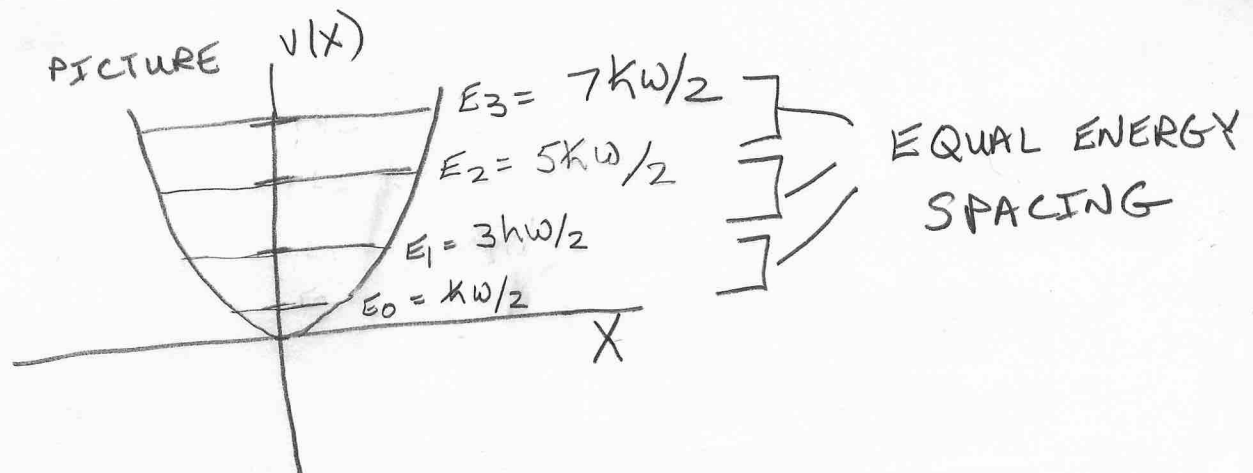 PICTURE
V(X)
E3 = 7ħω/2
E2 = 5ħω/2
E1 = 3hω/2
E0 = ħω/2
X
EQUAL ENERGY
SPACING